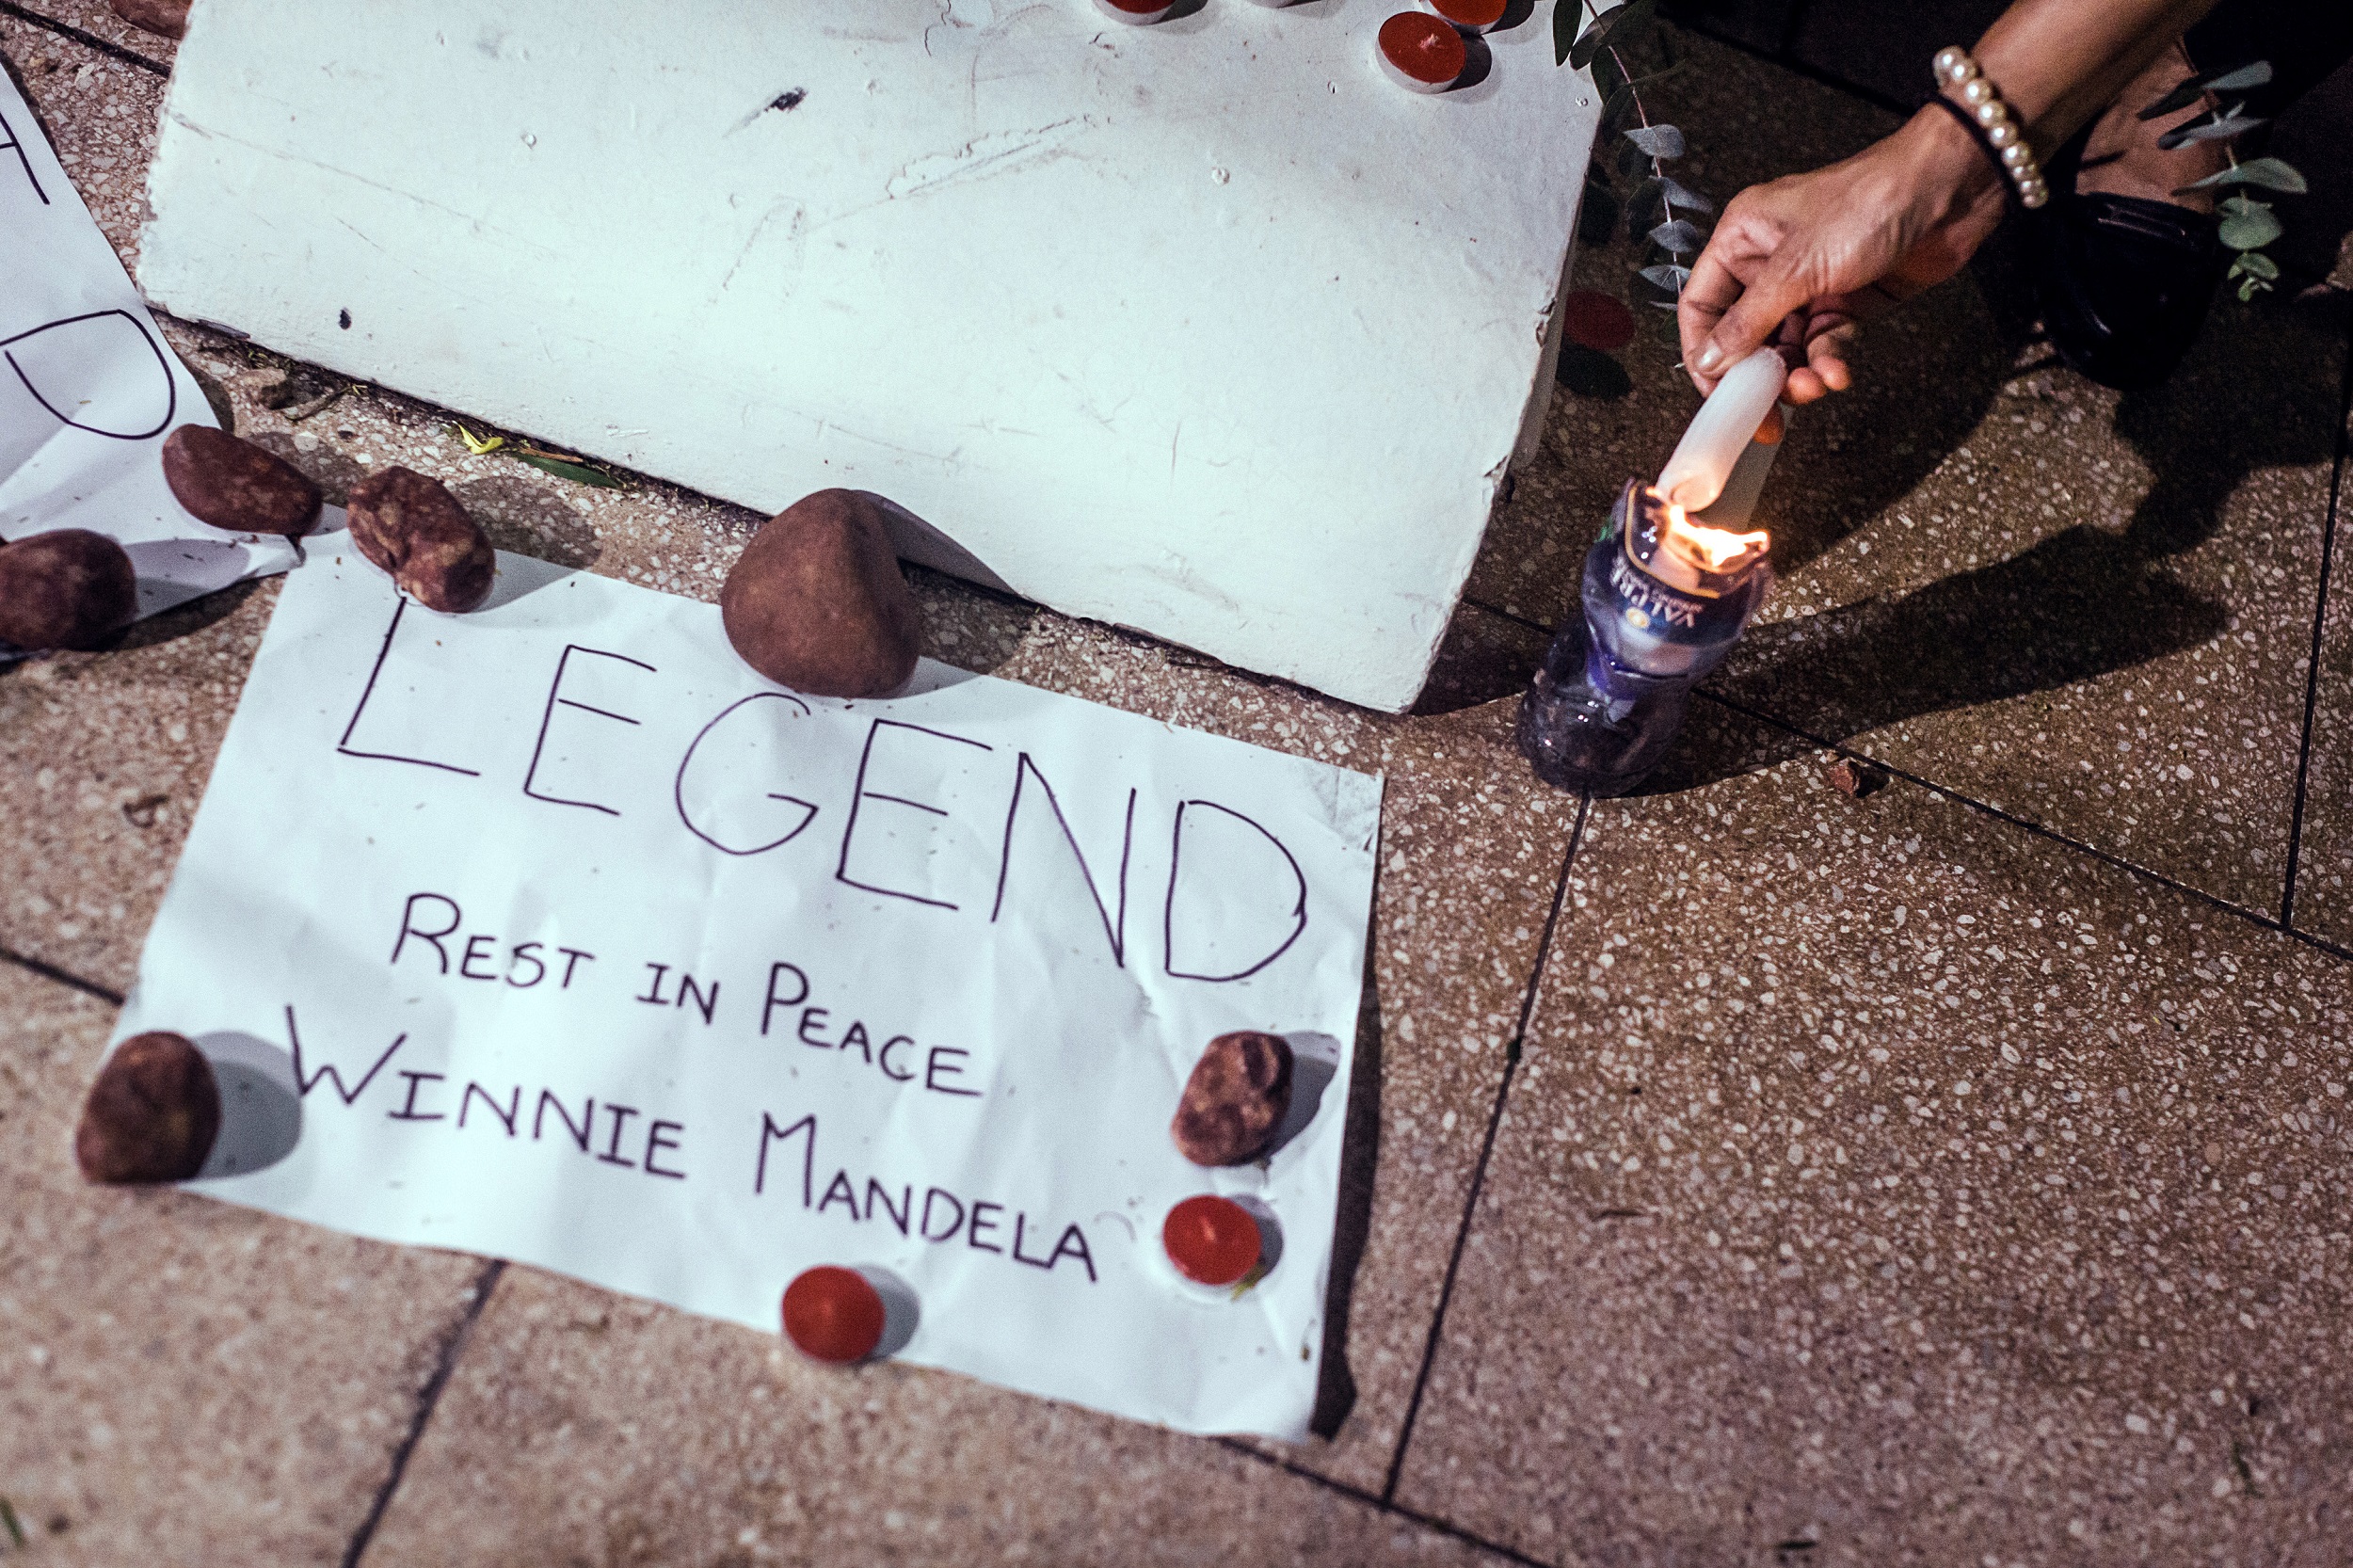 LEGEND
REST IN PEACE
WINNIE MANDELA
VALPRÉ